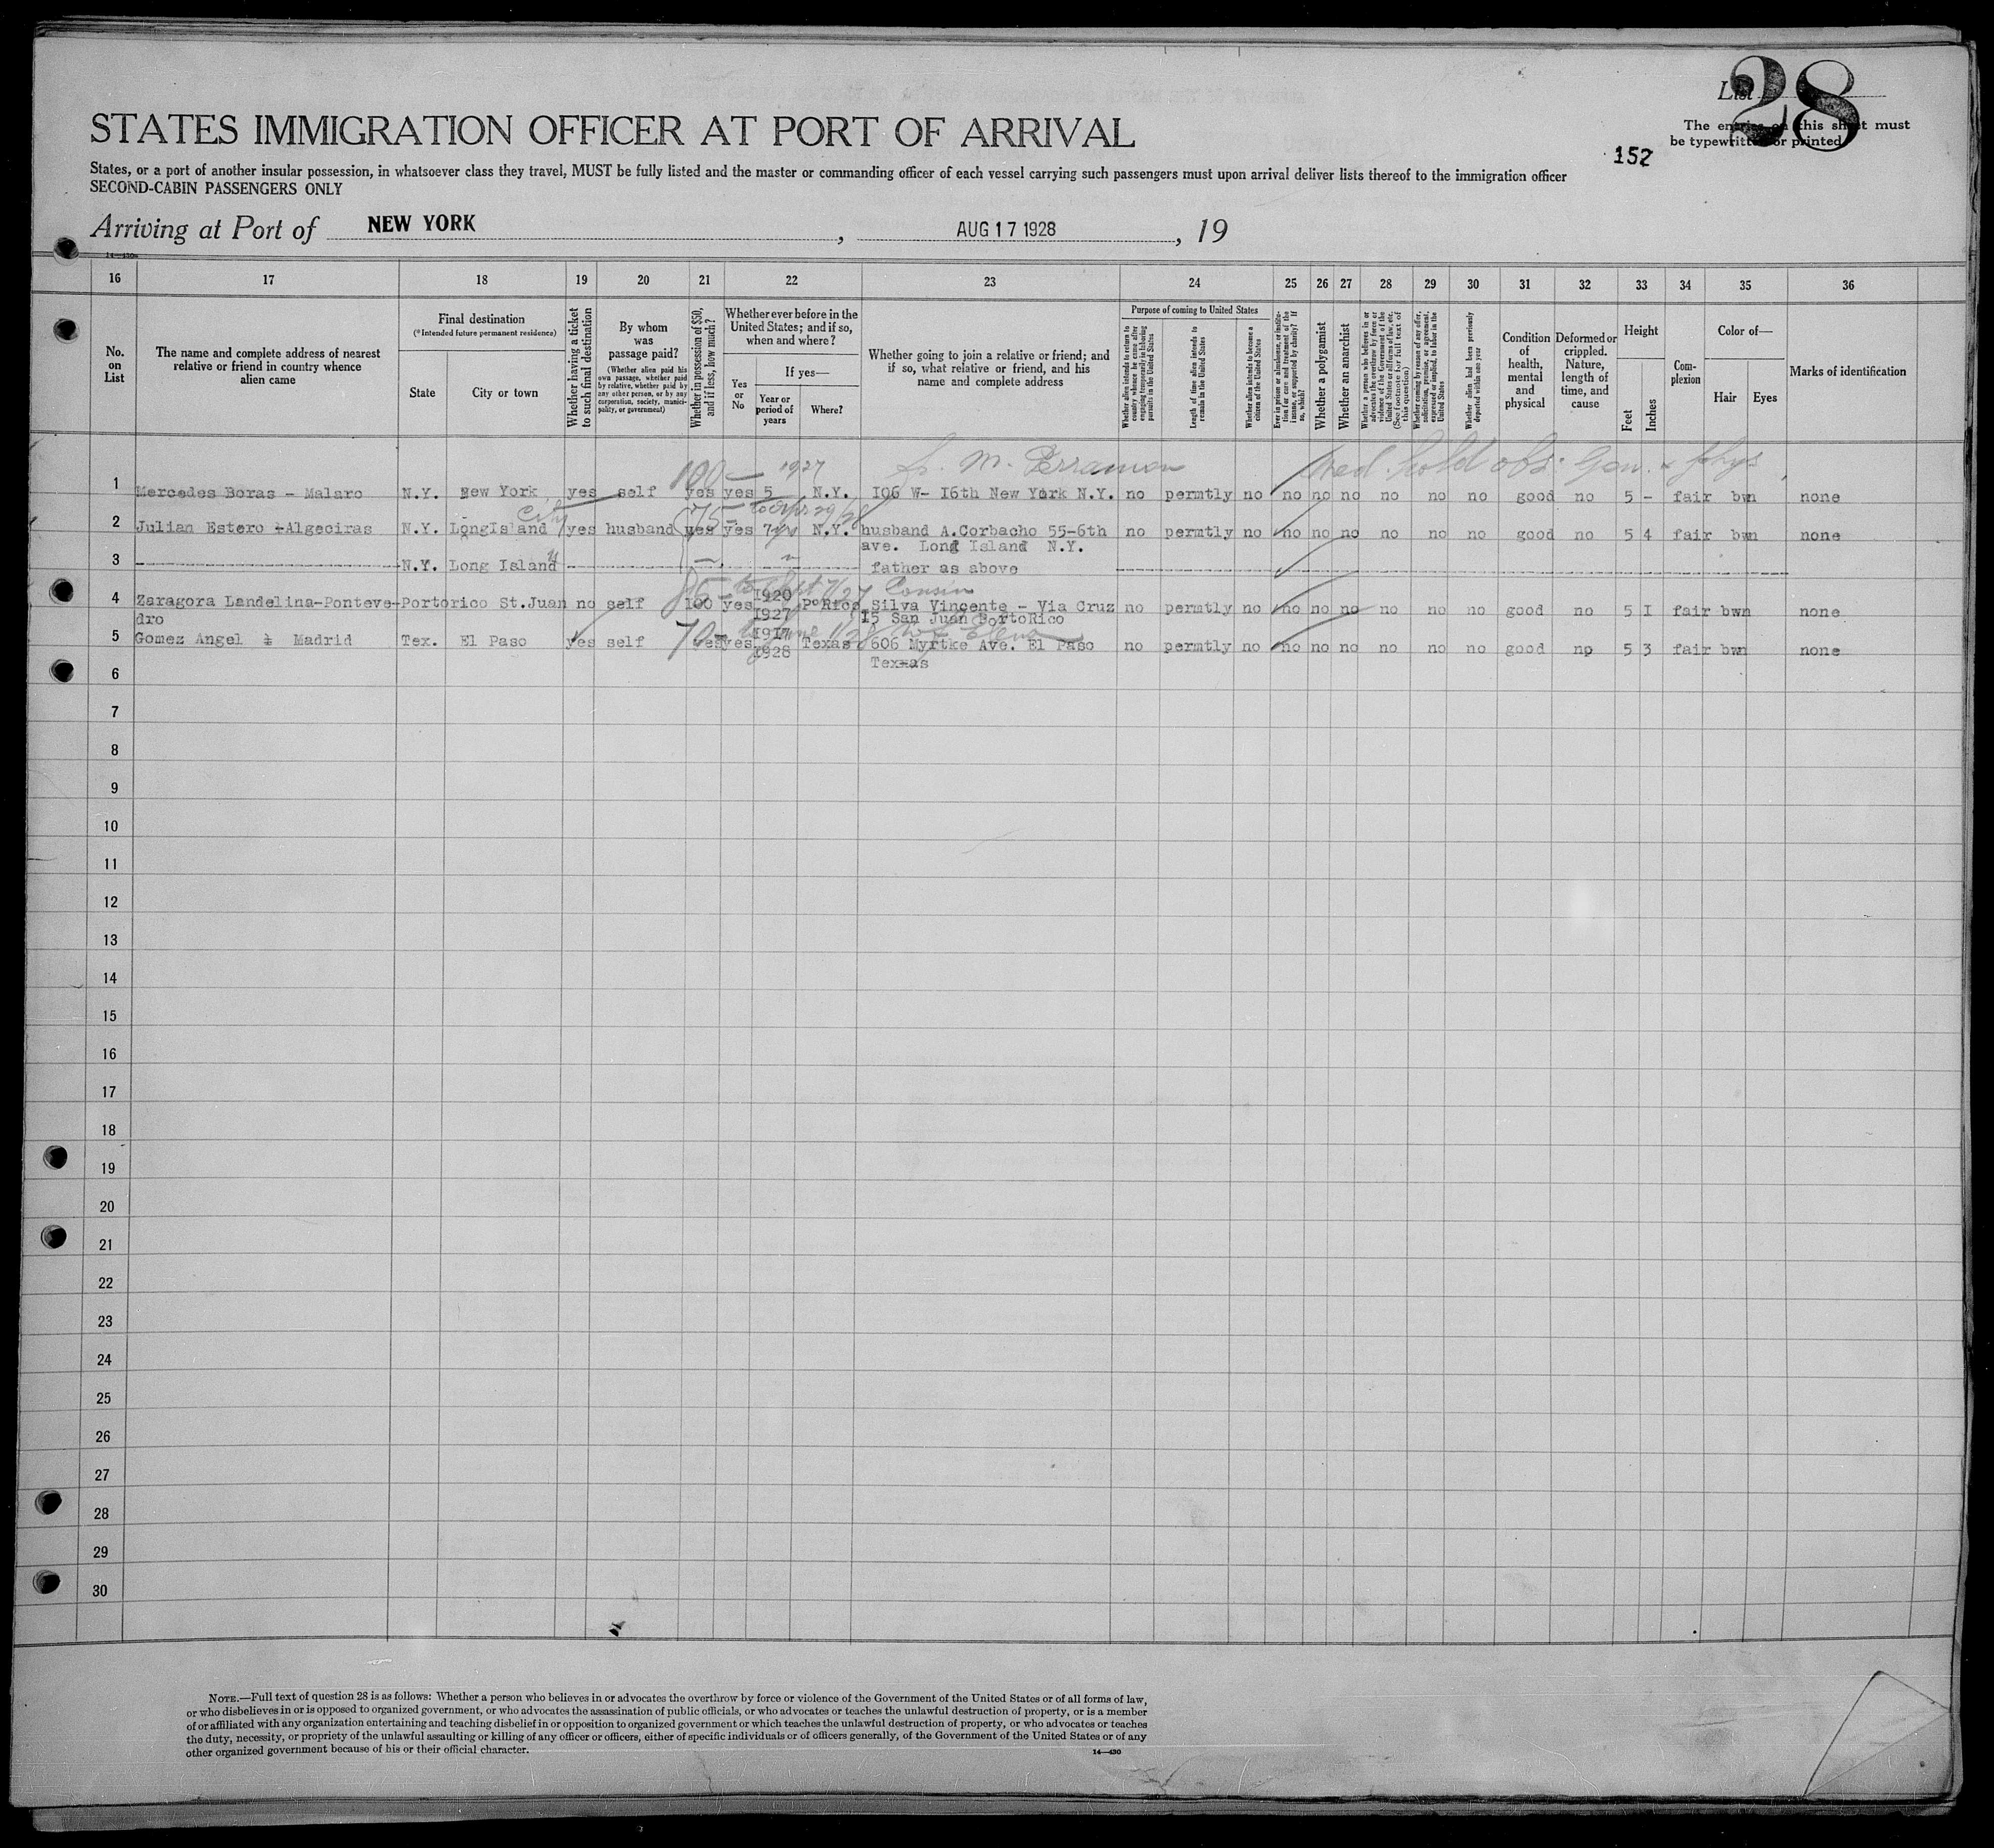 List 28
The entries on this sheet must
be typewritten or printed
152
STATES IMMIGRATION OFFICER AT PORT OF ARRIVAL
States, or a port of another insular possession, in whatsoever class they travel, MUST be fully listed and the master or commanding officer of each vessel carrying such passengers must upon arrival deliver lists thereof to the immigration officer
SECOND-CABIN PASSENGERS ONLY
Arriving at Port of NEW YORK, AUG 17 1928, 19
14—430
16 17 18 19 20 21 22 23 24 25 26 27 28 29 30 31 32 33 34 35 36
No. on List
The name and complete address of nearest relative or friend in country whence alien came
Final destination
(*Intended future permanent residence)
State
City or town
Whether having a ticket to such final destination
By whom was passage paid?
(Whether alien paid his own passage, whether paid by relative, whether paid by any other person, or by any corporation, society, municipality, or government)
Whether in possession of $50, and if less, how much?
Whether ever before in the United States; and if so, when and where?
Yes or No
If yes—
Year or period of years
Where?
Whether going to join a relative or friend; and if so, what relative or friend, and his name and complete address
Purpose of coming to United States
Whether alien intends to return to country whence he came after engaging temporarily in laboring pursuits in the United States
Length of time alien intends to remain in the United States
Whether alien intends to become a citizen of the United States
Ever in prison or almshouse, or institution for care and treatment of the insane, or supported by charity? If so, which?
Whether a polygamist
Whether an anarchist
Whether a person who believes in or advocates the overthrow by force or violence of the Government of the United States or all forms of law, etc. (See footnote for full text of this question)
Whether coming by reason of any offer, solicitation, promise, or agreement, expressed or implied, to labor in the United States
Whether alien had been previously deported within one year
Condition of health, mental and physical
Deformed or crippled. Nature, length of time, and cause
Height
Feet
Inches
Complexion
Color of—
Hair
Eyes
Marks of identification
100— 1927 med. hold obs. Gen. phys
1 Mercedes Boras - Malaro N.Y. New York yes self yes yes 5 N.Y. 106 W- 16th New York N.Y. no permtly no no no no no no no good no 5 - fair bwn none
City 75—
2 Julian Estero -Algeciras N.Y. LongIsland yes husband yes yes 7 N.Y. husband A.Corbacho 55-6th no permtly no no no no no no no good no 5 4 fair bwn none
ave. Long Island N.Y.
3 N.Y. Long Island father as above
85— Cousin
4 Zaragora Landelina-Ponteve-Portorico St.Juan no self 100 yes 1920 PoRico Silva Vincente - Via Cruz no permtly no no no no no no no good no 5 1 fair bwn none
dro 1927 15 San Juan PortoRico
70— 1917 Elena
5 Gomez Angel Madrid Tex. El Paso yes self yes yes 1928 Texas 606 Myrtke Ave. El Paso no permtly no no no no no no no good no 5 3 fair bwn none
Texas
6
7
8
9
10
11
12
13
14
15
16
17
18
19
20
21
22
23
24
25
26
27
28
29
30
NOTE.—Full text of question 28 is as follows: Whether a person who believes in or advocates the overthrow by force or violence of the Government of the United States or of all forms of law,
or who disbelieves in or is opposed to organized government, or who advocates the assassination of public officials, or who advocates or teaches the unlawful destruction of property, or is a member
of or affiliated with any organization entertaining and teaching disbelief in or opposition to organized government or which teaches the unlawful destruction of property, or who advocates or teaches
the duty, necessity, or propriety of the unlawful assaulting or killing of any officer or officers, either of specific individuals or of officers generally, of the Government of the United States or of any
other organized government because of his or their official character.
14—430